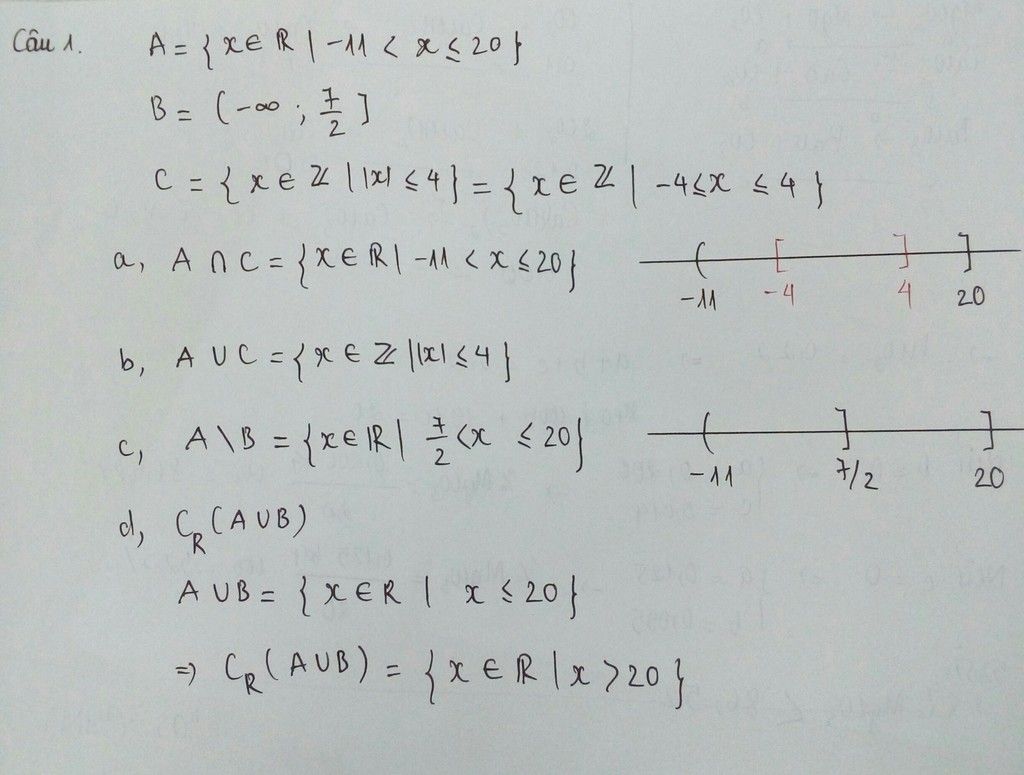 Câu 1. A = { x ∈ ℝ | -11 < x ≤ 20 }
B = ( -∞ ; 7/2 ]
C = { x ∈ ℤ | |x| ≤ 4 } = { x ∈ ℤ | -4 ≤ x ≤ 4 }
a, A ∩ C = { x ∈ ℝ | -11 < x ≤ 20 }
( [ ] ]
-11 -4 4 20
b, A ∪ C = { x ∈ ℤ | |x| ≤ 4 }
c, A \ B = { x ∈ ℝ | 7/2 < x ≤ 20 }
( ] ]
-11 7/2 20
d, C_R (A ∪ B)
A ∪ B = { x ∈ R | x ≤ 20 }
=> C_R (A ∪ B) = { x ∈ ℝ | x > 20 }